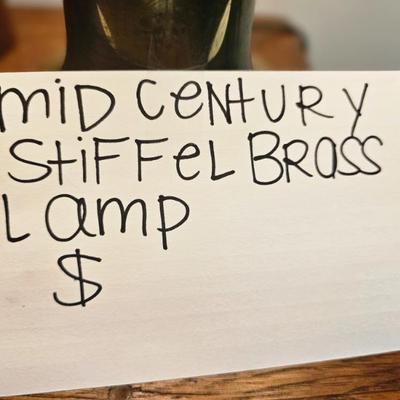 MiD CeNtURY
StiFFeL BRaSS
LamP
$